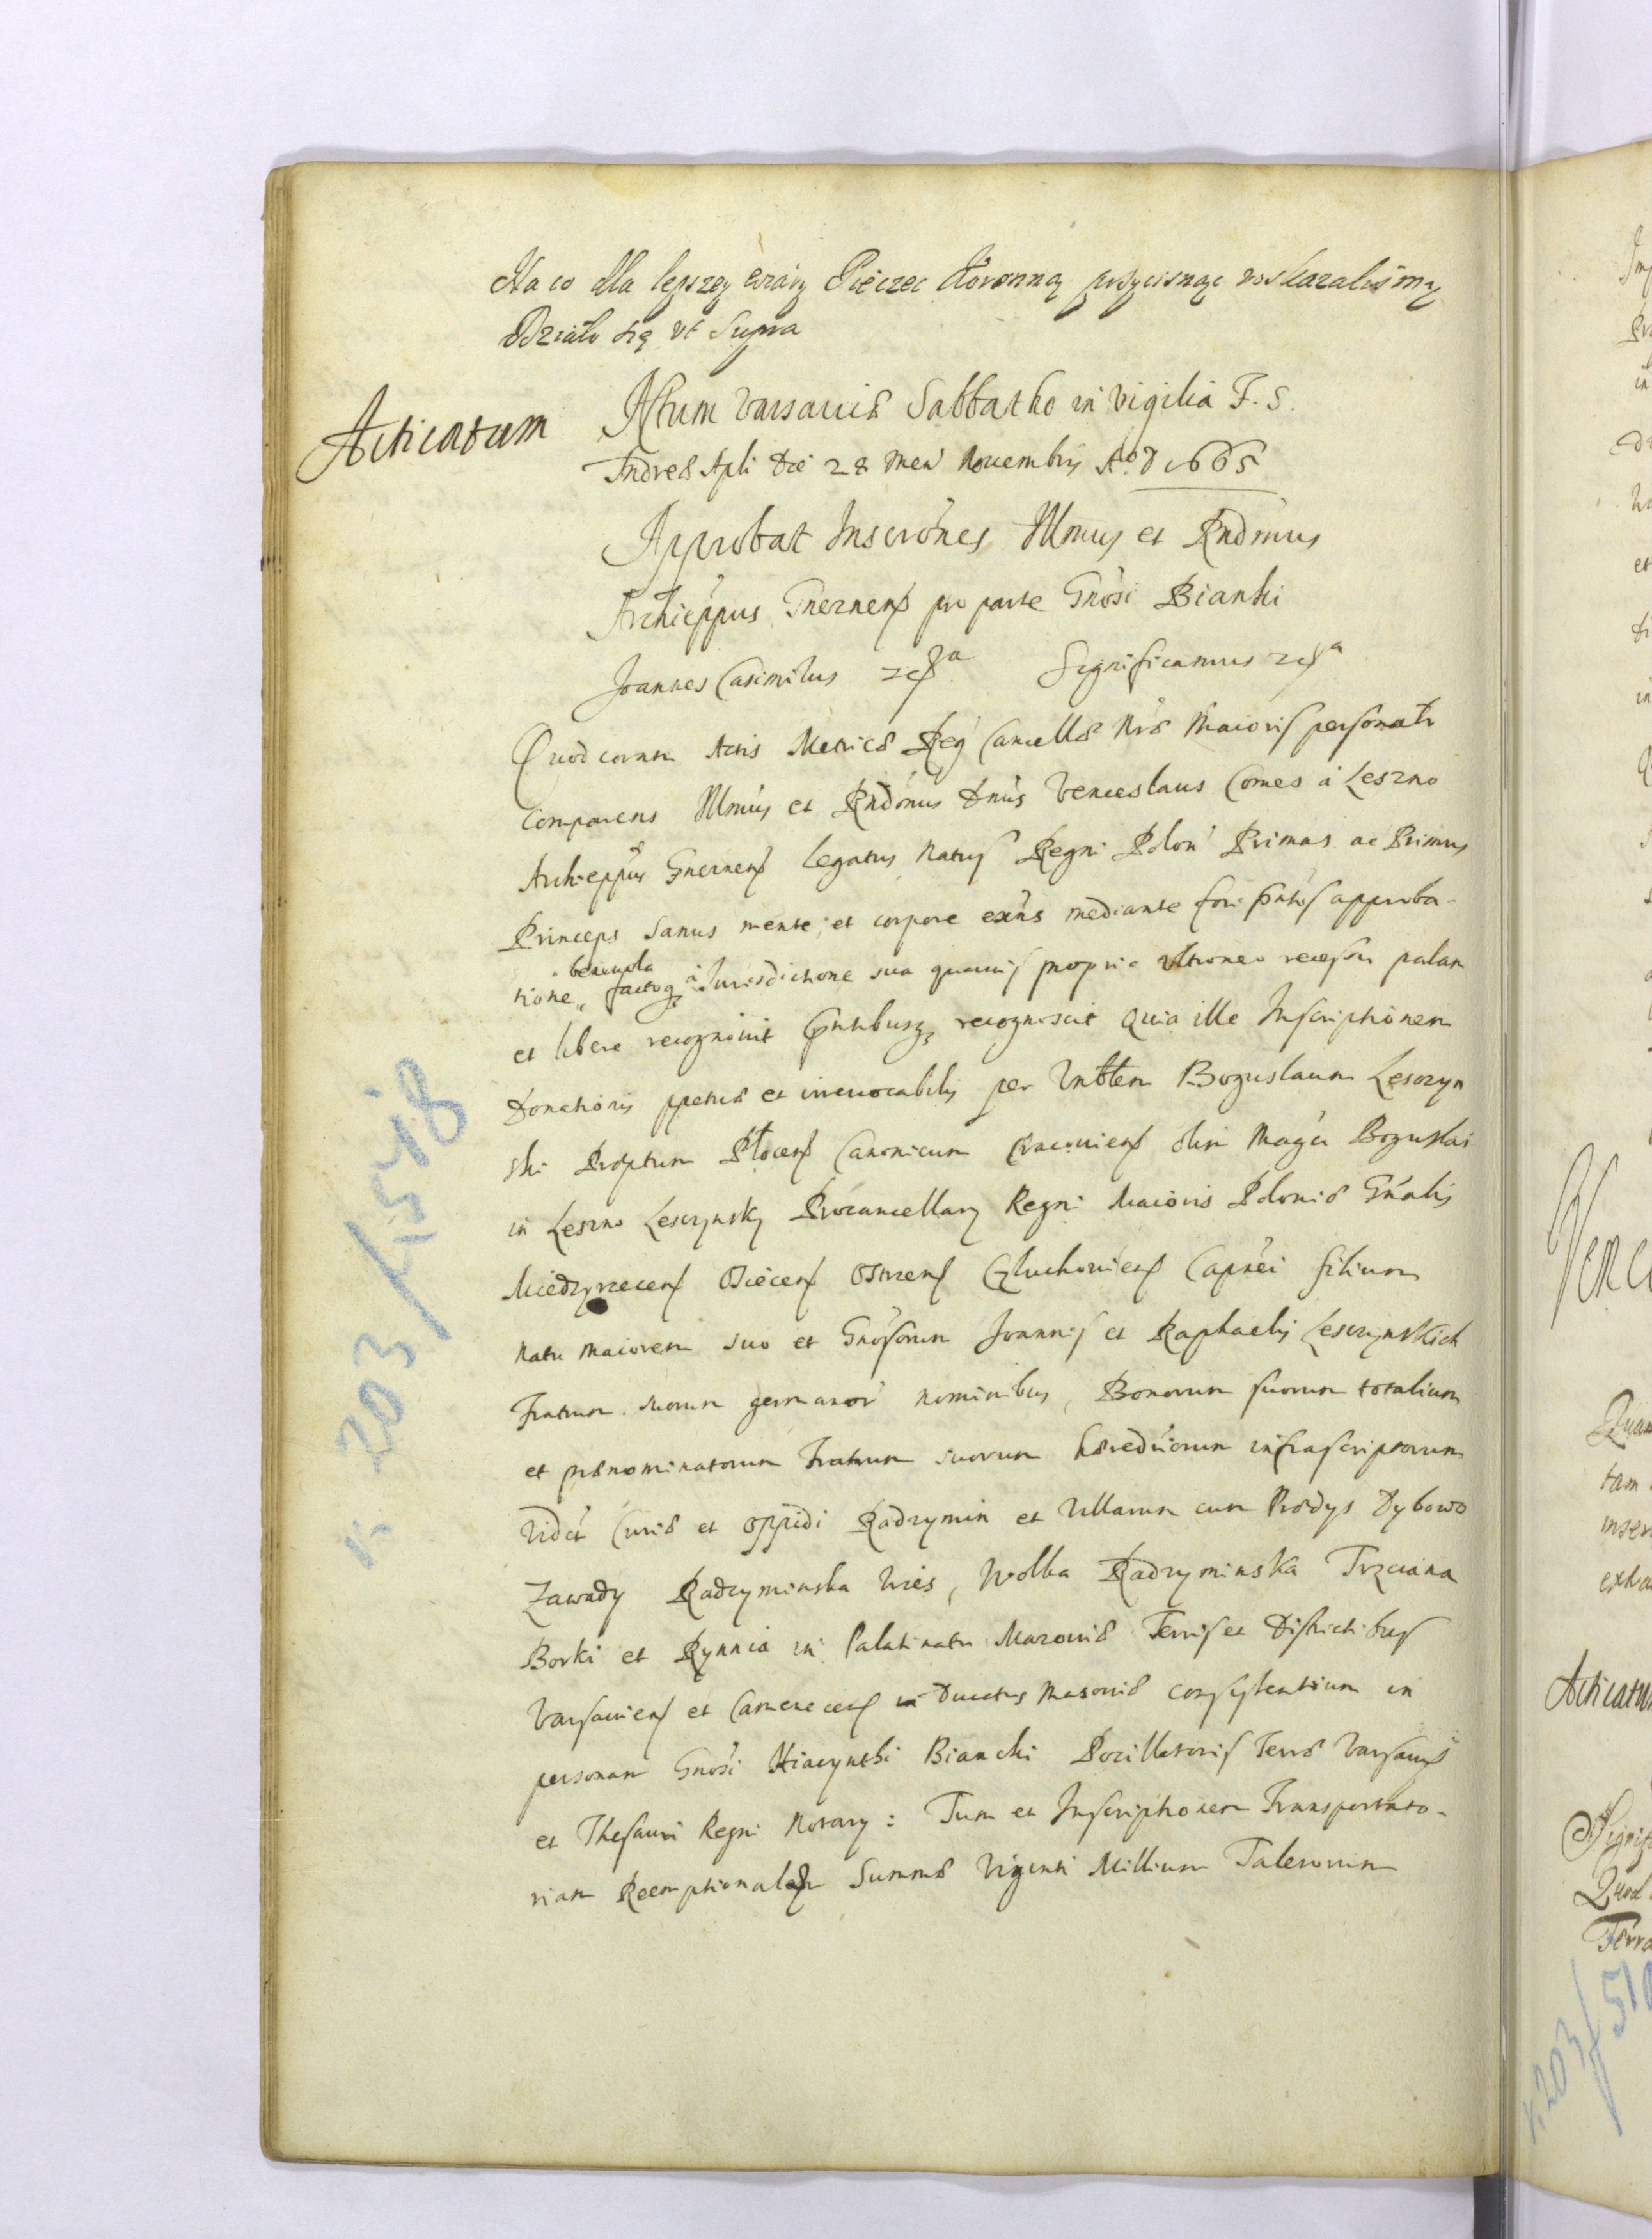 Na co dla lepszey wiary Pieczec Koronną przycisnąc roskazalismy
Działo się vt Supra
Acticatum
Actum Varsaviæ Sabbatho in vigilia F. S.
Andreæ Apli Die 28 Men Novembris Ao D 1665
Approbat Inscrones Illmus et Rndmus
Archieppus Gneznens pro parte Gnosi Bianki
Joannes Casimirus Significamus
Quod coram Actis Metricæ Reg Cancellæ Nræ Maioris personalr
Comparens Illmus et Rndmus Dnus Venceslaus Comes à Leszno
Archieppus Gneznens Legatus Natus Regni Polon Primas ac Primus
Princeps Sanus mente et corpore exns mediante fori pntis approba-
benevola
tione factoq à Jurisdictione sua quavis propria vltroneo recessu palam
et libere recognovit pntibusq recognoscit Quia ille Inscriptionem
Donationis ppetuæ et irrevocabilis per Vnblem Boguslaum Lesczyn
ski Præptum Płocens Canonicum Cracoviens olim Magci Boguslai
in Leszno Lesczynsky Procancellary Regni Maioris Poloniæ Gnalis
Miedzyrzecens Osiecens Ostrzens Czluchoviens Capnei filium
natu maiorem suo et Gnosorum Joannis et Raphaelis Lesczynskich
Fratrum suorum germanor nominibus, Bonorum suorum totalium
et prænominatorum Fratrum suorum hæreditiorum infrascriptorum
Vidct Curiæ et oppidi Radzymin et Villarum cum Prædys Dybowo
Zawady Radzyminska Wies, Wolka Radzyminska Trzciana
Borki et Rynnia in Palatinatu Mazoviæ Terris et Districtibus
Varsaviens et Camenecens in Ducatus Masoviæ consistentium in
personam Gnosi Hiacynthi Bianchi Pocillatoris Terræ Varsavis
et Thesauri Regni Notary: Tum et Inscriptionem Transportato-
riam Reemptionalem Summæ Viginti Millium Talerorum
k 203/1518